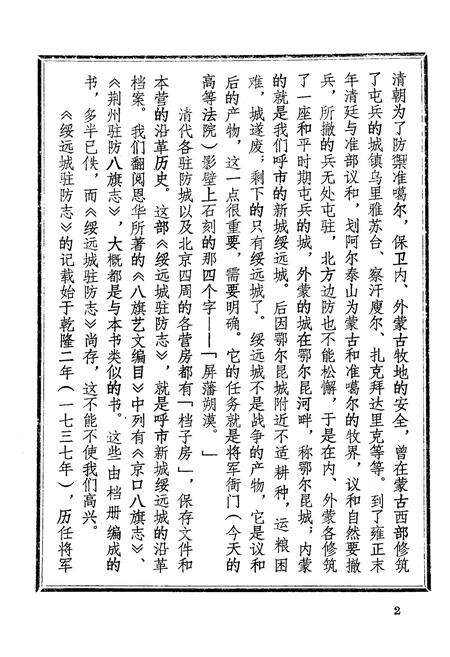 清朝为了防禦准噶尔，保卫内、外蒙古牧地的安全，曾在蒙古西部修筑
了屯兵的城镇乌里雅苏台、察汗廋尔、扎克拜达里克等等。到了雍正末
年清廷与准部议和，划阿尔泰山为蒙古和准噶尔的牧界，议和自然要撤
兵，所撤的兵无处屯驻，北方边防也不能松懈，于是在内、外蒙各修筑
了一座和平时期屯兵的城，外蒙的城在鄂尔昆河畔，称鄂尔昆城；内蒙
的就是我们呼市的新城绥远城。后因鄂尔昆城附近不适耕种，运粮困
难，城遂废；剩下的只有绥远城了。绥远城不是战争的产物，它是议和
后的产物，这一点很重要，需要明确。它的任务就是将军衙门（今天的
高等法院）影壁上石刻的那四个字——「屏藩朔漠。」
清代各驻防城以及北京四周的各营房都有「档子房」，保存文件和
本营的沿革历史。这部《绥远城驻防志》，就是呼市新城绥远城的沿革
档案。我们翻阅恩华所著的《八旗艺文编目》中列有《京口八旗志》、
《荆州驻防八旗志》，大概都是与本书类似的书。这些由档册编成的
书，多半已佚，而《绥远城驻防志》尚存，这不能不使我们高兴。
《绥远城驻防志》的记载始于乾隆二年（一七三七年），历任将军
2